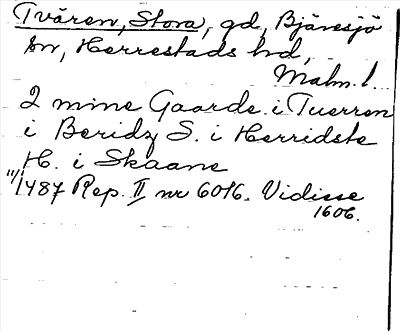 Tvären, Stora, gd, Bjäresjö
sn, Herrestads hd,
Malm. l.
2 mine Gaarde i Tuerren
i Beridz S. i Herridste
H. i Skaane
11/1 487 Rep. II nr 6016. Vidisse
1606.